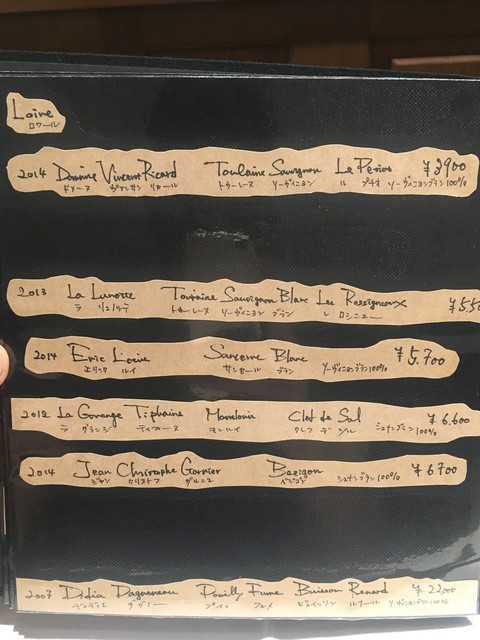 Loire
ロワール
2014 Domaine Vincent Ricard Toulaine Sauvignon Le Petiot ¥3900
ドメーヌ ヴァンサン リカール トゥーレーヌ ソーヴィニヨン ル プチオ ソーヴィニヨンブラン100%
2013 La Lunotte Touraine Sauvignon Blanc Les Rossigneaux ¥5.50
ラ リュノッテ トゥーレーヌ ソーヴィニヨン ブラン レ ロシニュー
2014 Eric Louis Sancerre Blanc ¥5.700
エリック ルイ サンセール ブラン ソーヴィニヨンブラン100%
2012 La Grange Tiphaine Montlouis Clef de Sol ¥6.600
ラ グランジ ティフェーヌ モンルイ クレフ デ ソル シュナンブラン100%
2014 Jean Christophe Garnier Bezigon ¥6700
ジャン クリストフ ガルニエ ベジゴン シュナンブラン100%
2007 Didier Dagueneau Pouilly Fume Buisson Renard ¥22000
ディディエ ダグノー プイィ フュメ ビュイッソン ルナール ソーヴィニヨンブラン100%